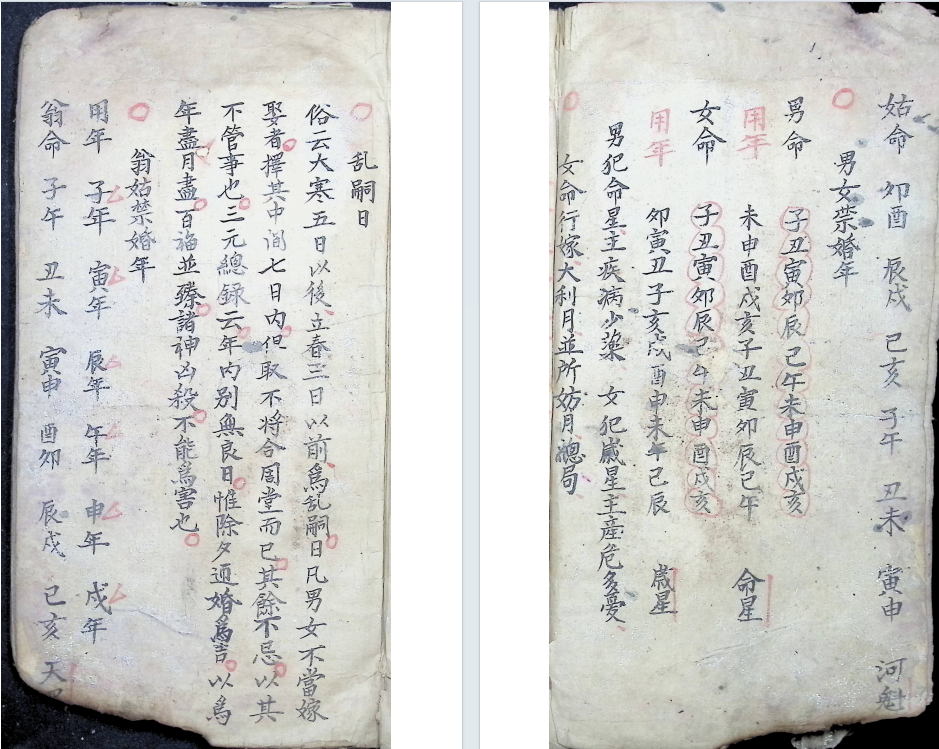 乱嗣日
俗云大寒五日以後立春三日以前爲乱嗣日凡男女不當嫁
娶者擇其中间七日内但取不將合周堂而已其餘不忌以其
不管事也三元總録云年内别無良日惟除夕逥婚爲吉以爲
年盡月盡百福並臻諸神凶殺不能爲害也
翁姑禁婚年
用年 子年 寅年 辰年 午年 申年 戌年
翁命 子午 丑未 寅申 酉卯 辰戌 己亥 天
姑命 卯酉 辰戌 己亥 子午 丑未 寅申 河魁
男女禁婚年
男命 子丑寅卯辰己午未申酉戌亥
用年 未申酉戌亥子丑寅卯辰己午 命星
女命 子丑寅卯辰己午未申酉戌亥
用年 卯寅丑子亥戌酉申未午己辰 歲星
男犯命星主疾病少藥 女犯歲星主產危多憂
女命行嫁大利月並所妨月總局